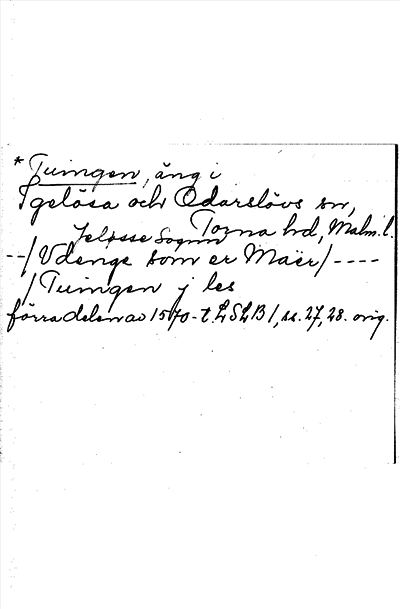 * Tuingen, äng i
Igelösa och Odarslövs sn,
Torna hd, Malm. l.
Jeløsse Sognn
--/Vdenge som er Maër/----
/Tuingen j les
förra delen av 1570-t. LSLB1, ss. 27, 28. orig.